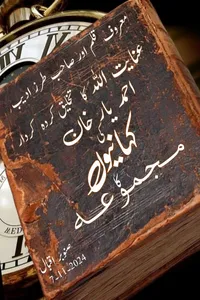 معروف قلم اور صاحب طرز ادیب
عنایت اللہ کا تخلیق کردہ کردار
احمد یار خان
کی
کہانیوں
کا
مجموعہ
صنوبر اقبال
7-11-2024